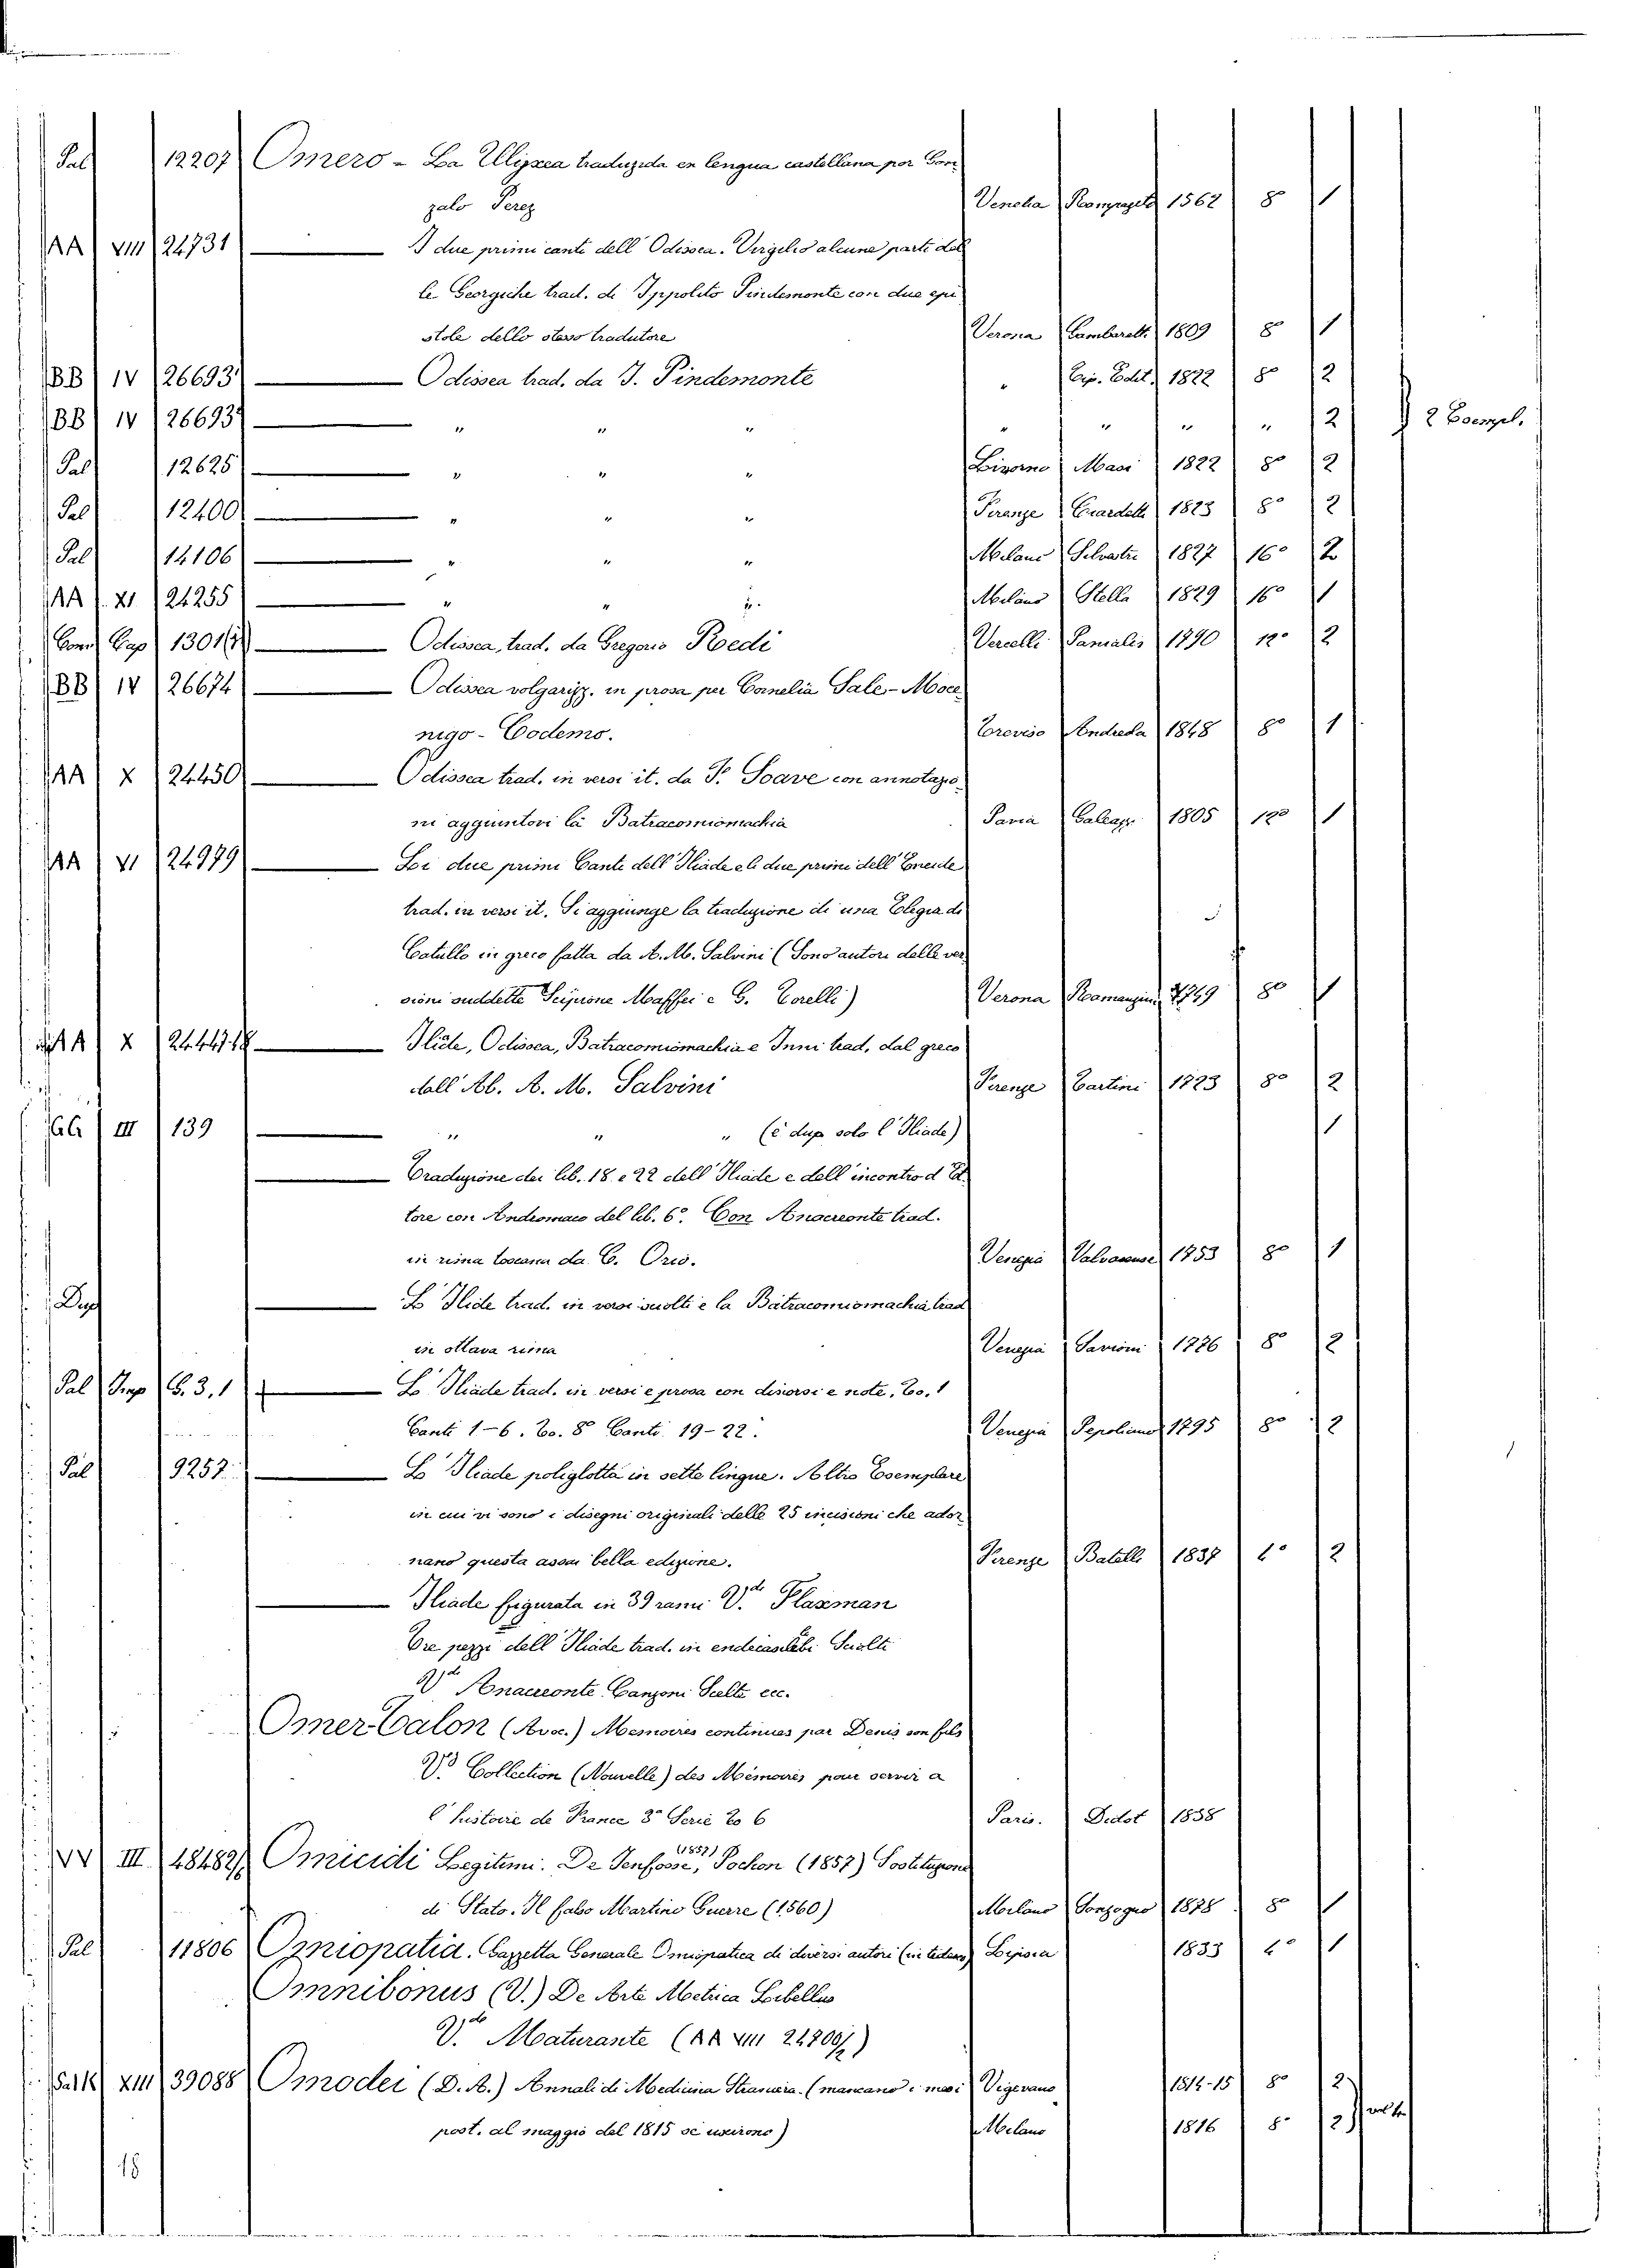 Pal 12207 Omero - La Ulyxea traduzida en lengua castellana por Gon
zalo Perez Venetia 1562 8 1
AA VIII 24731 — I due primi canti dell'Odissea. Virgilio alcune parti del
le Georgiche trad. da Ippolito Pindemonte con due epi
stole dello stesso tradutore Verona Gambaretti 1809 8 1
BB IV 26693 — Odissea trad. da I. Pindemonte " Tip. Edit. 1822 8° 2
BB IV 26693 — " " " " " " " 2 2 Esempl.
Pal 12625 — " " " Livorno Masi 1822 8° 2
Pal 12400 — " " " Firenze Ciardetti 1823 8° 2
Pal 14106 — " " " Milano Silvestri 1827 16° 2
AA XI 24255 — " " " Milano Stella 1829 16° 1
Com Cap 1301 — Odissea, trad. da Gregorio Redi Vercelli Panialis 1790 12° 2
BB IV 26674 — Odissea volgarizz. in prosa per Cornelia Sale-Moce
nigo-Codemo. Treviso Andreola 1848 8° 1
AA X 24450 — Odissea trad. in versi it. da F. Soave con annotazio
ni aggiuntovi la Batracomiomachia Pavia Galeazz. 1805 12° 1
AA VI 24979 — Li due primi Canti dell'Iliade e li due primi dell'Eneide
trad. in versi it. Si aggiunge la traduzione di una Elegia di
Catullo in greco fatta da A. M. Salvini (Sono autori delle ver
sioni suddette Scipione Maffei e G. Torelli) Verona Ramanzini 1749 8° 1
AA X — Iliade, Odissea, Batracomiomachia e Inni trad. dal greco
dall'Ab. A. M. Salvini Firenze Tartini 1723 8° 2
III 139 — " " " (è dup solo l'Iliade) 1
— Traduzione dei lib. 18 e 22 dell'Iliade e dell'incontro d'Et
tore con Andromaco del lib. 6°. Con Anacreonte trad.
in rima toscana da C. Orio. Venezia Valvasense 1753 8° 1
Dup — L'Iliade trad. in versi sciolti e la Batracomiomachia trad
in ottava rima Venezia Savioni 1776 8° 2
Pal Imp G. 3. 1 — L'Iliade trad. in versi e prosa con discorsi e note, To. 1
Canti 1-6. To. 8° Canti 19-22. Venezia Pepoliana 1795 8° 2
Pal 9257 — L'Iliade poliglotta in sette lingue. Altro Esemplare
in cui vi sono i disegni originali delle 25 incisioni che ador
nano questa assai bella edizione. Firenze Batelli 1837 4° 2
— Iliade figurata in 39 rami V.de Flaxman
Tre pezzi dell'Iliade trad. in endecasilabi Sciolti
V.de Anacreonte Canzoni Scelte ecc.
Omer-Talon (Avoc.) Memoires continues par Denis son fils
V. Collection (Nouvelle) des Mémoires pour servir a
l'histoire de France 3e Serie To 6 Paris. Didot 1838
VV III 48482 Omicidi Legitimi. De Penfosse, (1857) Pochon (1857) Sostituzione
di Stato. Il falso Martino Guerre (1560) Milano Sonzogno 1878 8° 1
Pal 11806 Omiopatia. Gazzetta Generale Omiopatica di diversi autori (in tedesco) Lipsia 1833 4° 1
Omnibonus (V.) De Arte Metrica Libellus
V.de Maturante (AA VIII 24700/2)
XIII 39088 Omodei (D. A.) Annali di Medicina Straniera. (mancano i mesi Vigevano 1814-15 8° 2
post. al maggio del 1815 se uscirono) Milano 1816 8° 2
18